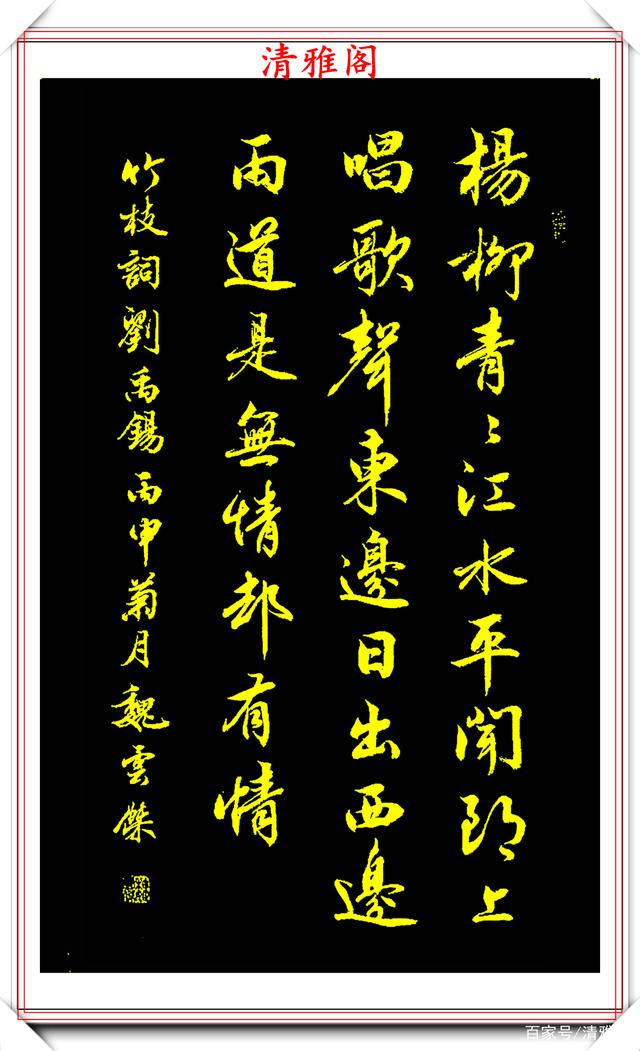 清雅阁
楊柳青〻江水平聞郎上
唱歌聲東邊日出西邊
雨道是無情却有情
竹枝詞劉禹錫丙申菊月魏雲傑
百家号/清雅